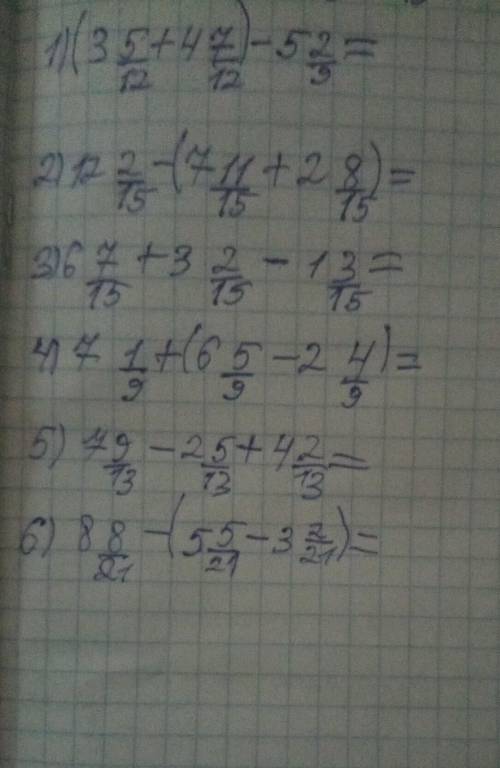 1) (3 5/12 + 4 7/12) - 5 2/3 =
2) 12 2/15 - (7 11/15 + 2 8/15) =
3) 6 7/15 + 3 2/15 - 1 3/15 =
4) 7 1/9 + (6 5/9 - 2 4/9) =
5) 7 9/13 - 2 5/13 + 4 2/13 =
6) 8 8/21 - (5 5/21 - 3 2/21) =